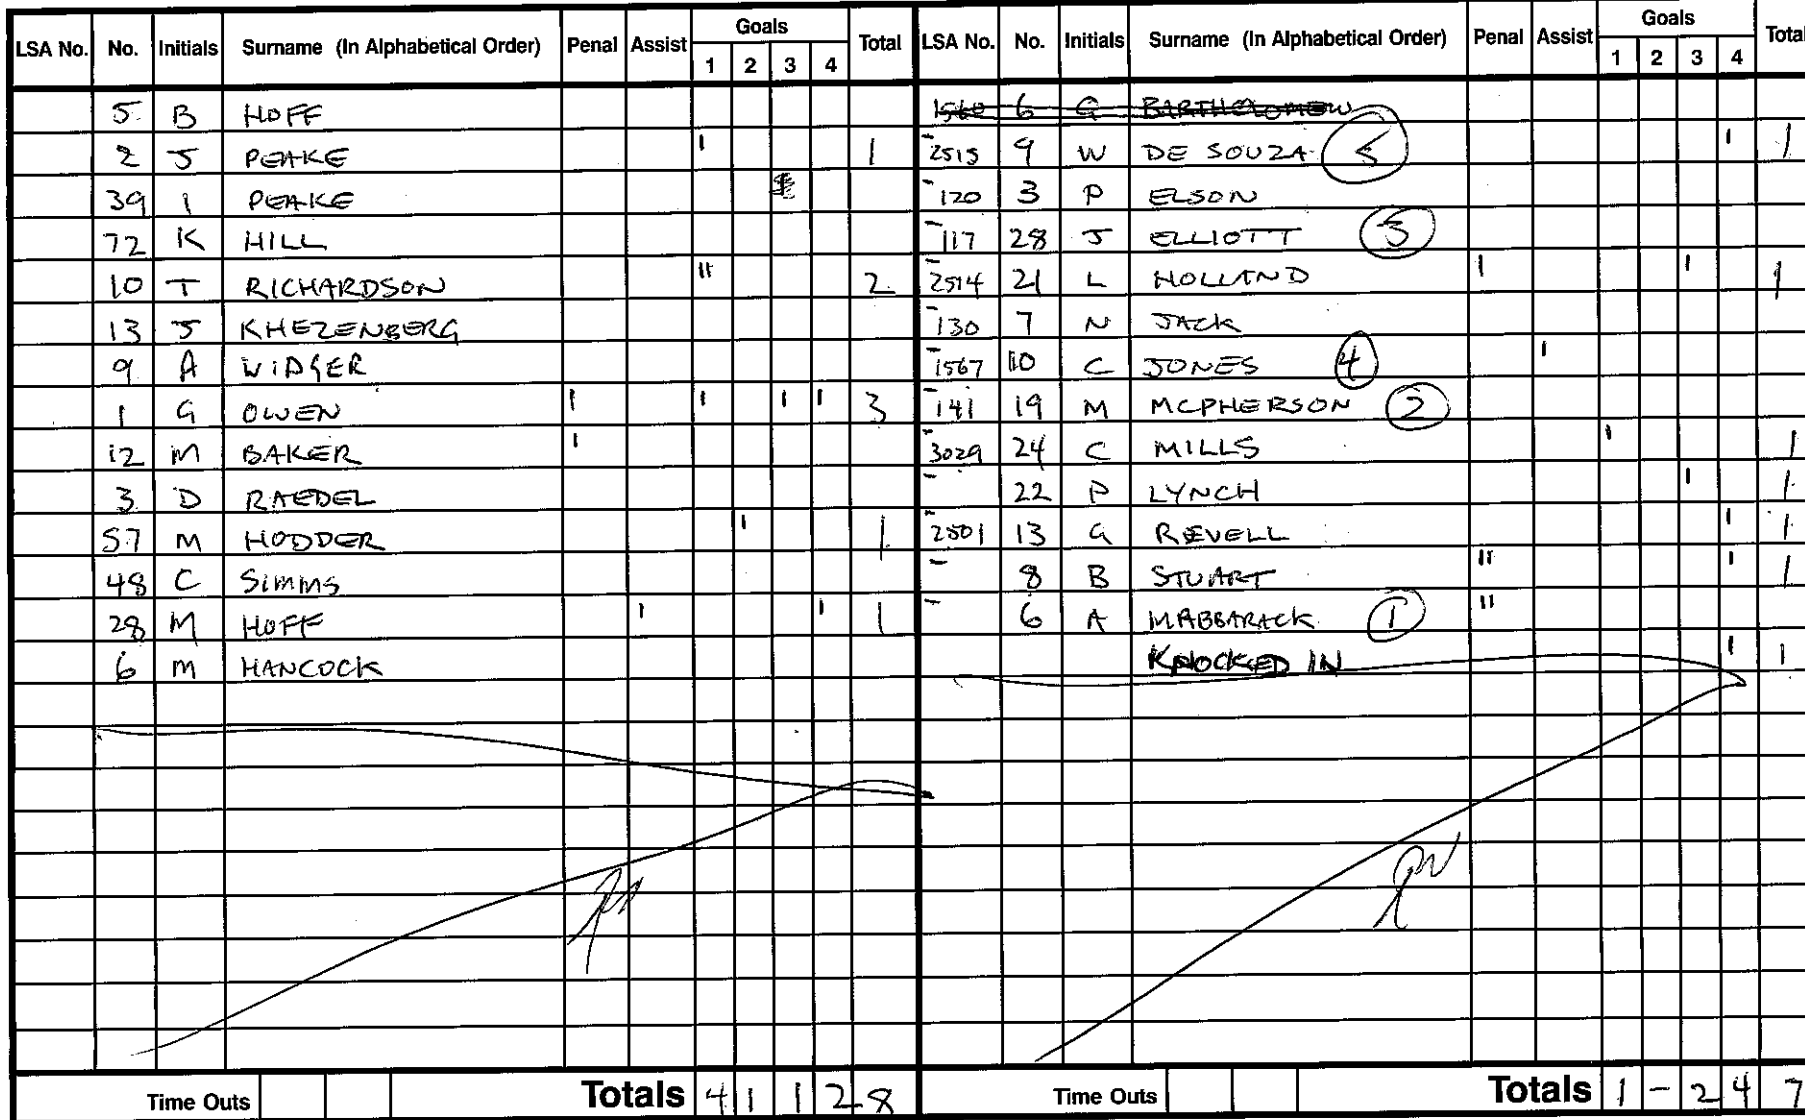 LSA No. No. Initials Surname (In Alphabetical Order) Penal Assist Goals 1 2 3 4 Total
5 B HOFF
2 J PEAKE 1 1
39 I PEAKE
72 K HILL
10 T RICHARDSON 11 2
13 J KHEZENBERG
9 A WIDGER
1 G OWEN 1 1 1 1 3
12 M BAKER 1
3 D RAEDEL
57 M HODDER 1 1
48 C Simms
28 M HOFF 1 1 1
6 M HANCOCK
Time Outs Totals 4 1 1 2 8
LSA No. No. Initials Surname (In Alphabetical Order) Penal Assist Goals 1 2 3 4 Total
1560 6 G BARTHOLOMEW
2515 9 W DE SOUZA 5 1 1
120 3 P ELSON
117 28 J ELLIOTT 3
2514 21 L HOLLAND 1 1 1
130 7 N JACK
1567 10 C JONES 4 1
141 19 M MCPHERSON 2
3029 24 C MILLS 1 1
- 22 P LYNCH 1 1
2501 13 G REVELL 1 1
- 8 B STUART 11 1 1
- 6 A MABBARACK 1 11
KNOCKED IN 1 1
Time Outs Totals 1 - 2 4 7